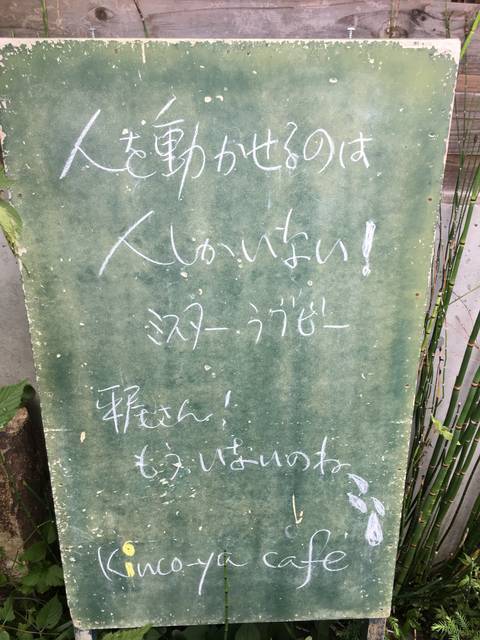 人を動かせるのは
人しかいない!
ミスター・ラグビー
平尾さん!
もう、いないのね
Kinco-ya café